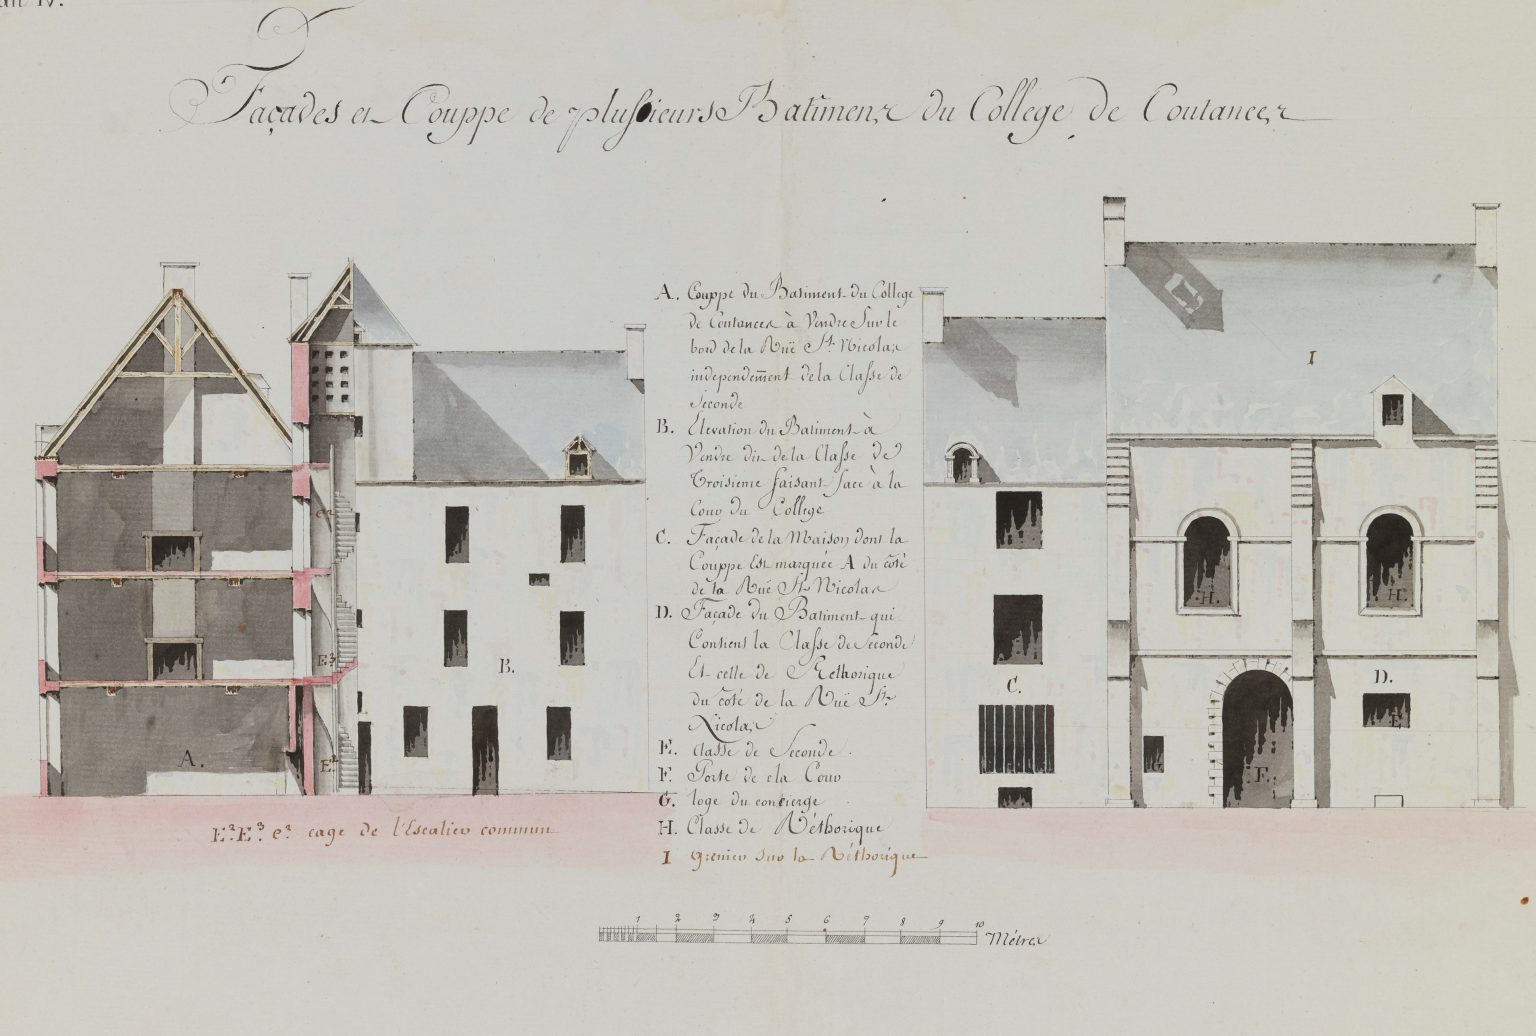 an IV.
Façades et Couppe de plusieurs Batimens du College de Coutances
A. Couppe du Batiment du College
de Coutances à Vendre Sur le
bord de la Ruë St. Nicolas
independem̄ent de la Classe de
Seconde
B. Elevation du Batiment à
Vendre dit de la Classe de
Troisieme faisant face à la
Cour du College
C. Façade de la Maison dont la
Couppe Est marquée A du côté
de la Ruë St. Nicolas
D. Façade du Batiment qui
Contient la Classe de Seconde
Et celle de Rethorique
du côté de la Ruë St.
Nicolas
E. Classe de Seconde.
F. Porte de cla Cour
G. loge du concierge
H. Classe de Réthorique
I grenier sur la Réthorique
I
e²
E³
E²
A.
B.
C.
D.
H.
H.
E.
F.
G
E².E³. e². cage de l'Escalier commun
1 2 3 4 5 6 7 8 9 10
Métres